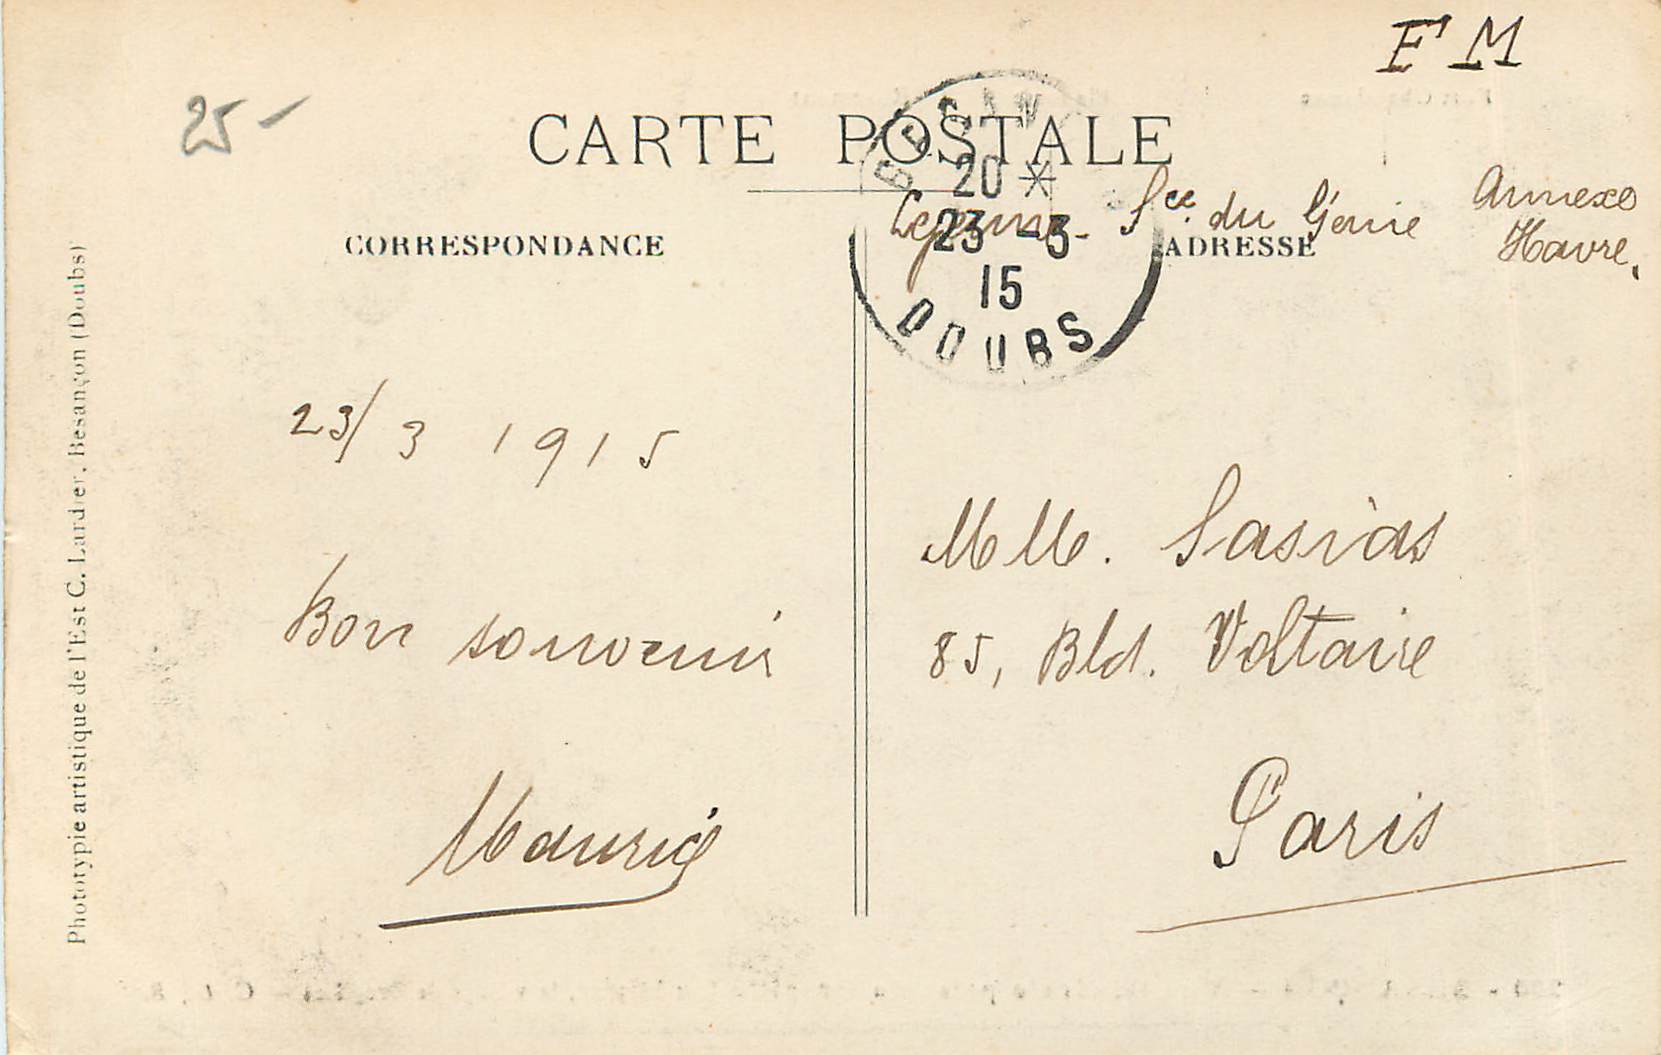 F M
25-
CARTE POSTALE
BESAN
20 *
23 - 3
15
DOUBS
Sce du Génie Annexe
Havre.
CORRESPONDANCE
ADRESSE
23/3 1915
Bon souvenir
Maurice
Mlle. Sasias
85, Bld. Voltaire
Paris
Phototypie artistique de l'Est C. Lardier, Besançon (Doubs)